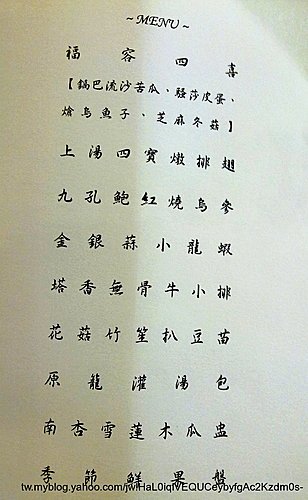 ~ MENU ~
福容四喜
【鍋巴流沙苦瓜、騷莎皮蛋、
燴烏魚子、芝麻冬菇】
上湯四寶燉排翅
九孔鮑紅燒烏參
金銀蒜小龍蝦
塔香無骨牛小排
花菇竹笙扒豆苗
原籠灌湯包
南杏雪蓮木瓜盅
季節鮮果盤
tw.myblog.yahoo.com/jwHaL0iqlVEQUCeybyfgAc2Kzdm0s-